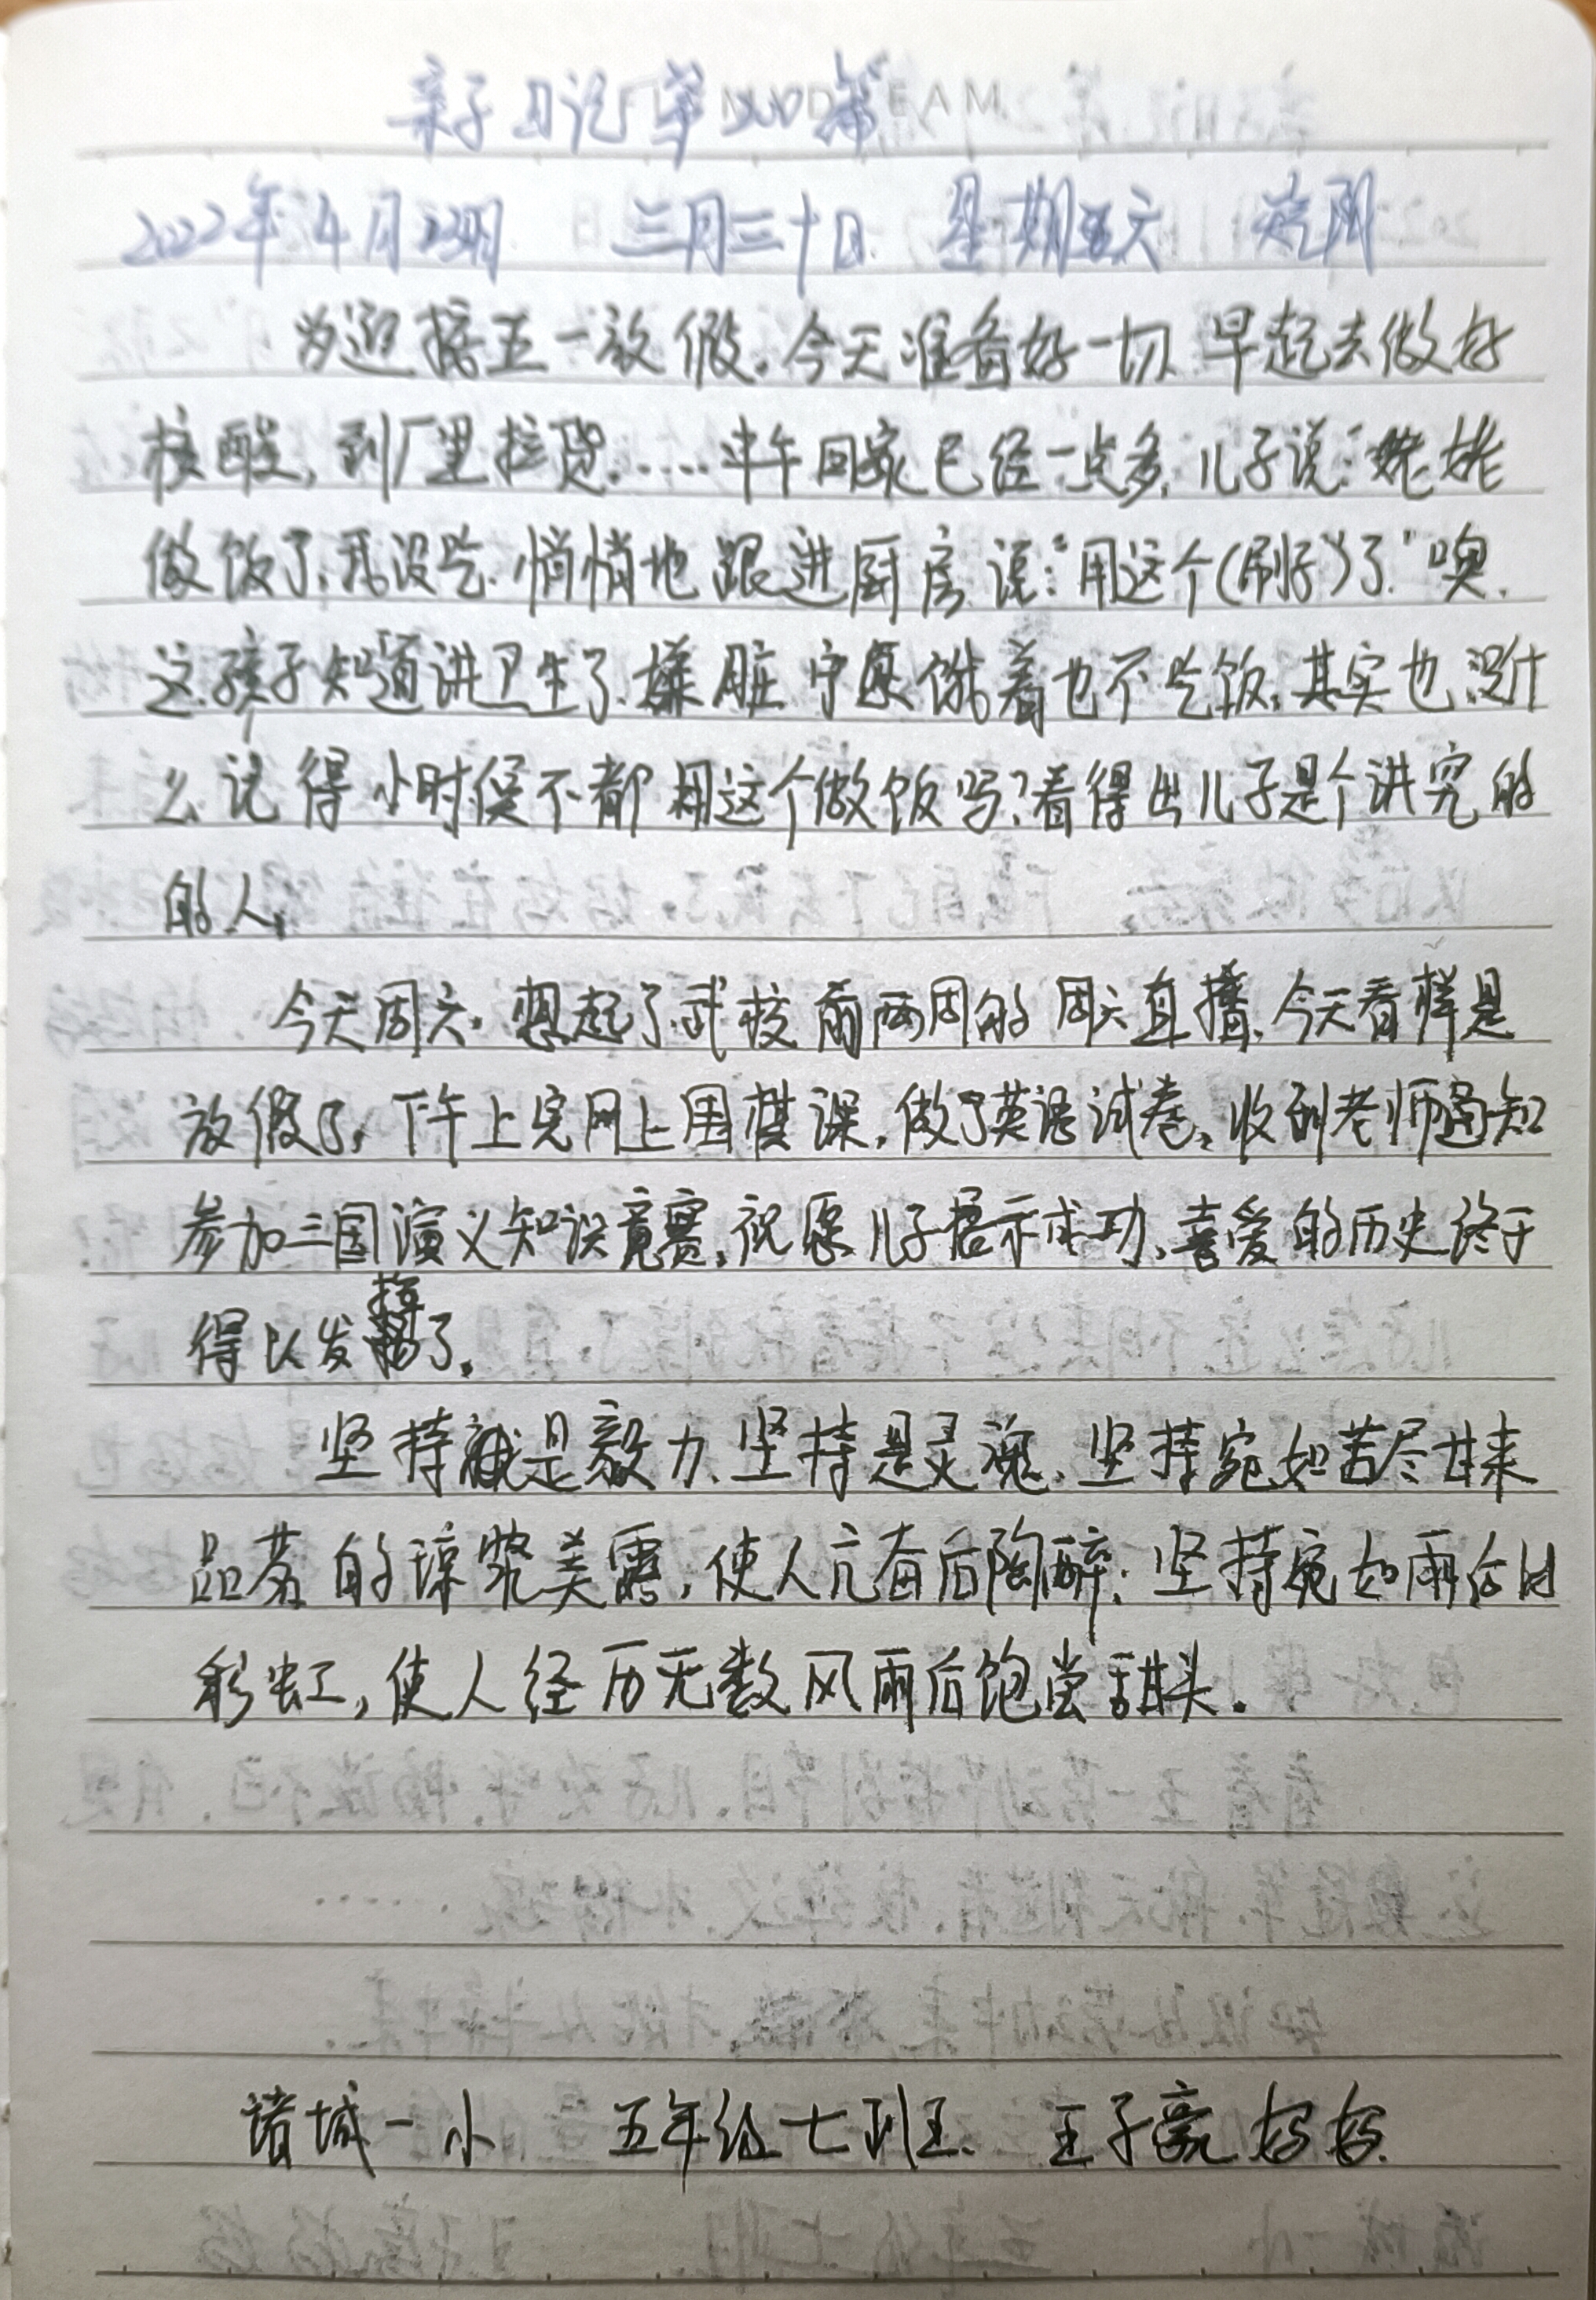 亲子日记第200篇
2022年4月 三月三十日 星期六
为迎接五一放假。今天准备好一切早起去做好
核酸,到厂里拉货.....中午回家已经一点多,儿子说:姥姥
做饭了,我没吃.悄悄地跟进厨房说:"用这个(刷子)了"噢.
这孩子知道讲卫生了.嫌脏宁愿饿着也不吃饭,其实也没什
么记得小时侯不都用这个做饭吗?看得出儿子是个讲究的
的人,
今天周六.想起了武校前两周的周六直播.今天看样是
放假了,下午上完网上围棋课,做了英语试卷,收到老师通知
参加三国演义知识竟赛,祝愿儿子启示成功,喜爱的历史终于
得以发挥了。
坚持就是毅力、坚持是灵魂、坚持宛如苦尽甘来
品茗的琼浆美露,使人亢奋后陶醉;坚持宛如雨后出
彩虹,使人经历无数风雨后饱尝甜头。
诸城一小 五年级七班王 王子豪妈妈